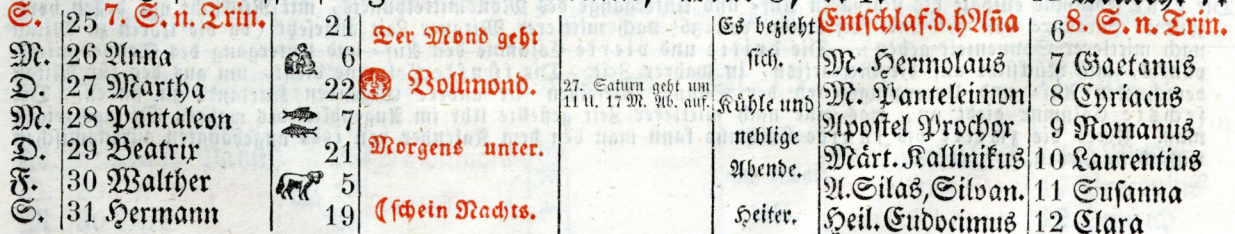 S. 25 7. S. n. Trin. 21 Der Mond geht Es bezieht Entschlaf. d. h Aña 6 8. S. n. Trin.
M. 26 Anna 6 sich. M. Hermolaus 7 Gaetanus
D. 27 Martha 22 Vollmond. 27. Saturn geht um 11 U. 17 M. Ab. auf. Kühle und M. Panteleimon 8 Cyriacus
M. 28 Pantaleon 7 neblige Apostel Prochor 9 Romanus
D. 29 Beatrix 21 Morgens unter. Abende. Märt. Kallinikus 10 Laurentius
F. 30 Walther 5 A. Silas, Silvan. 11 Susanna
S. 31 Hermann 19 (schein Nachts. Heiter. Heil. Eudocimus 12 Clara